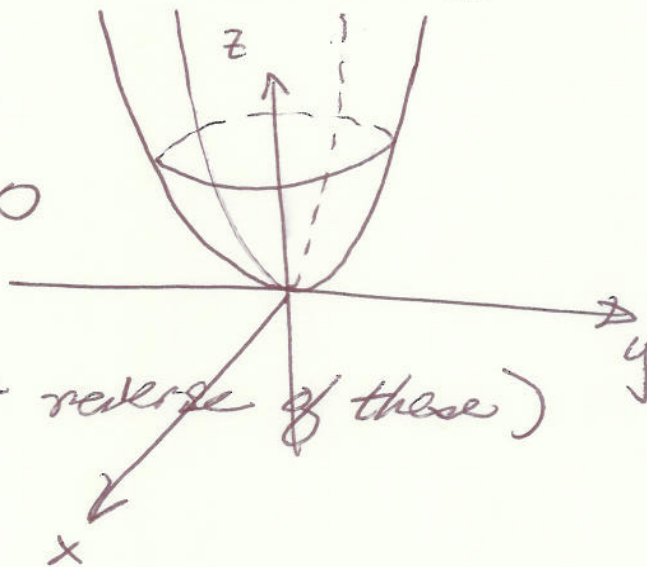 z
0
y
reverse of these)
x